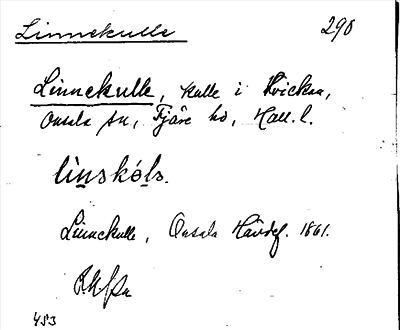 Linnekulle 290
Linnekulle, kulle i Kvicksa,
Onsala sn, Fjäre hd, Hall. l.
linskóls.
Linnekulle, Onsala Hävdef. 1861.
453